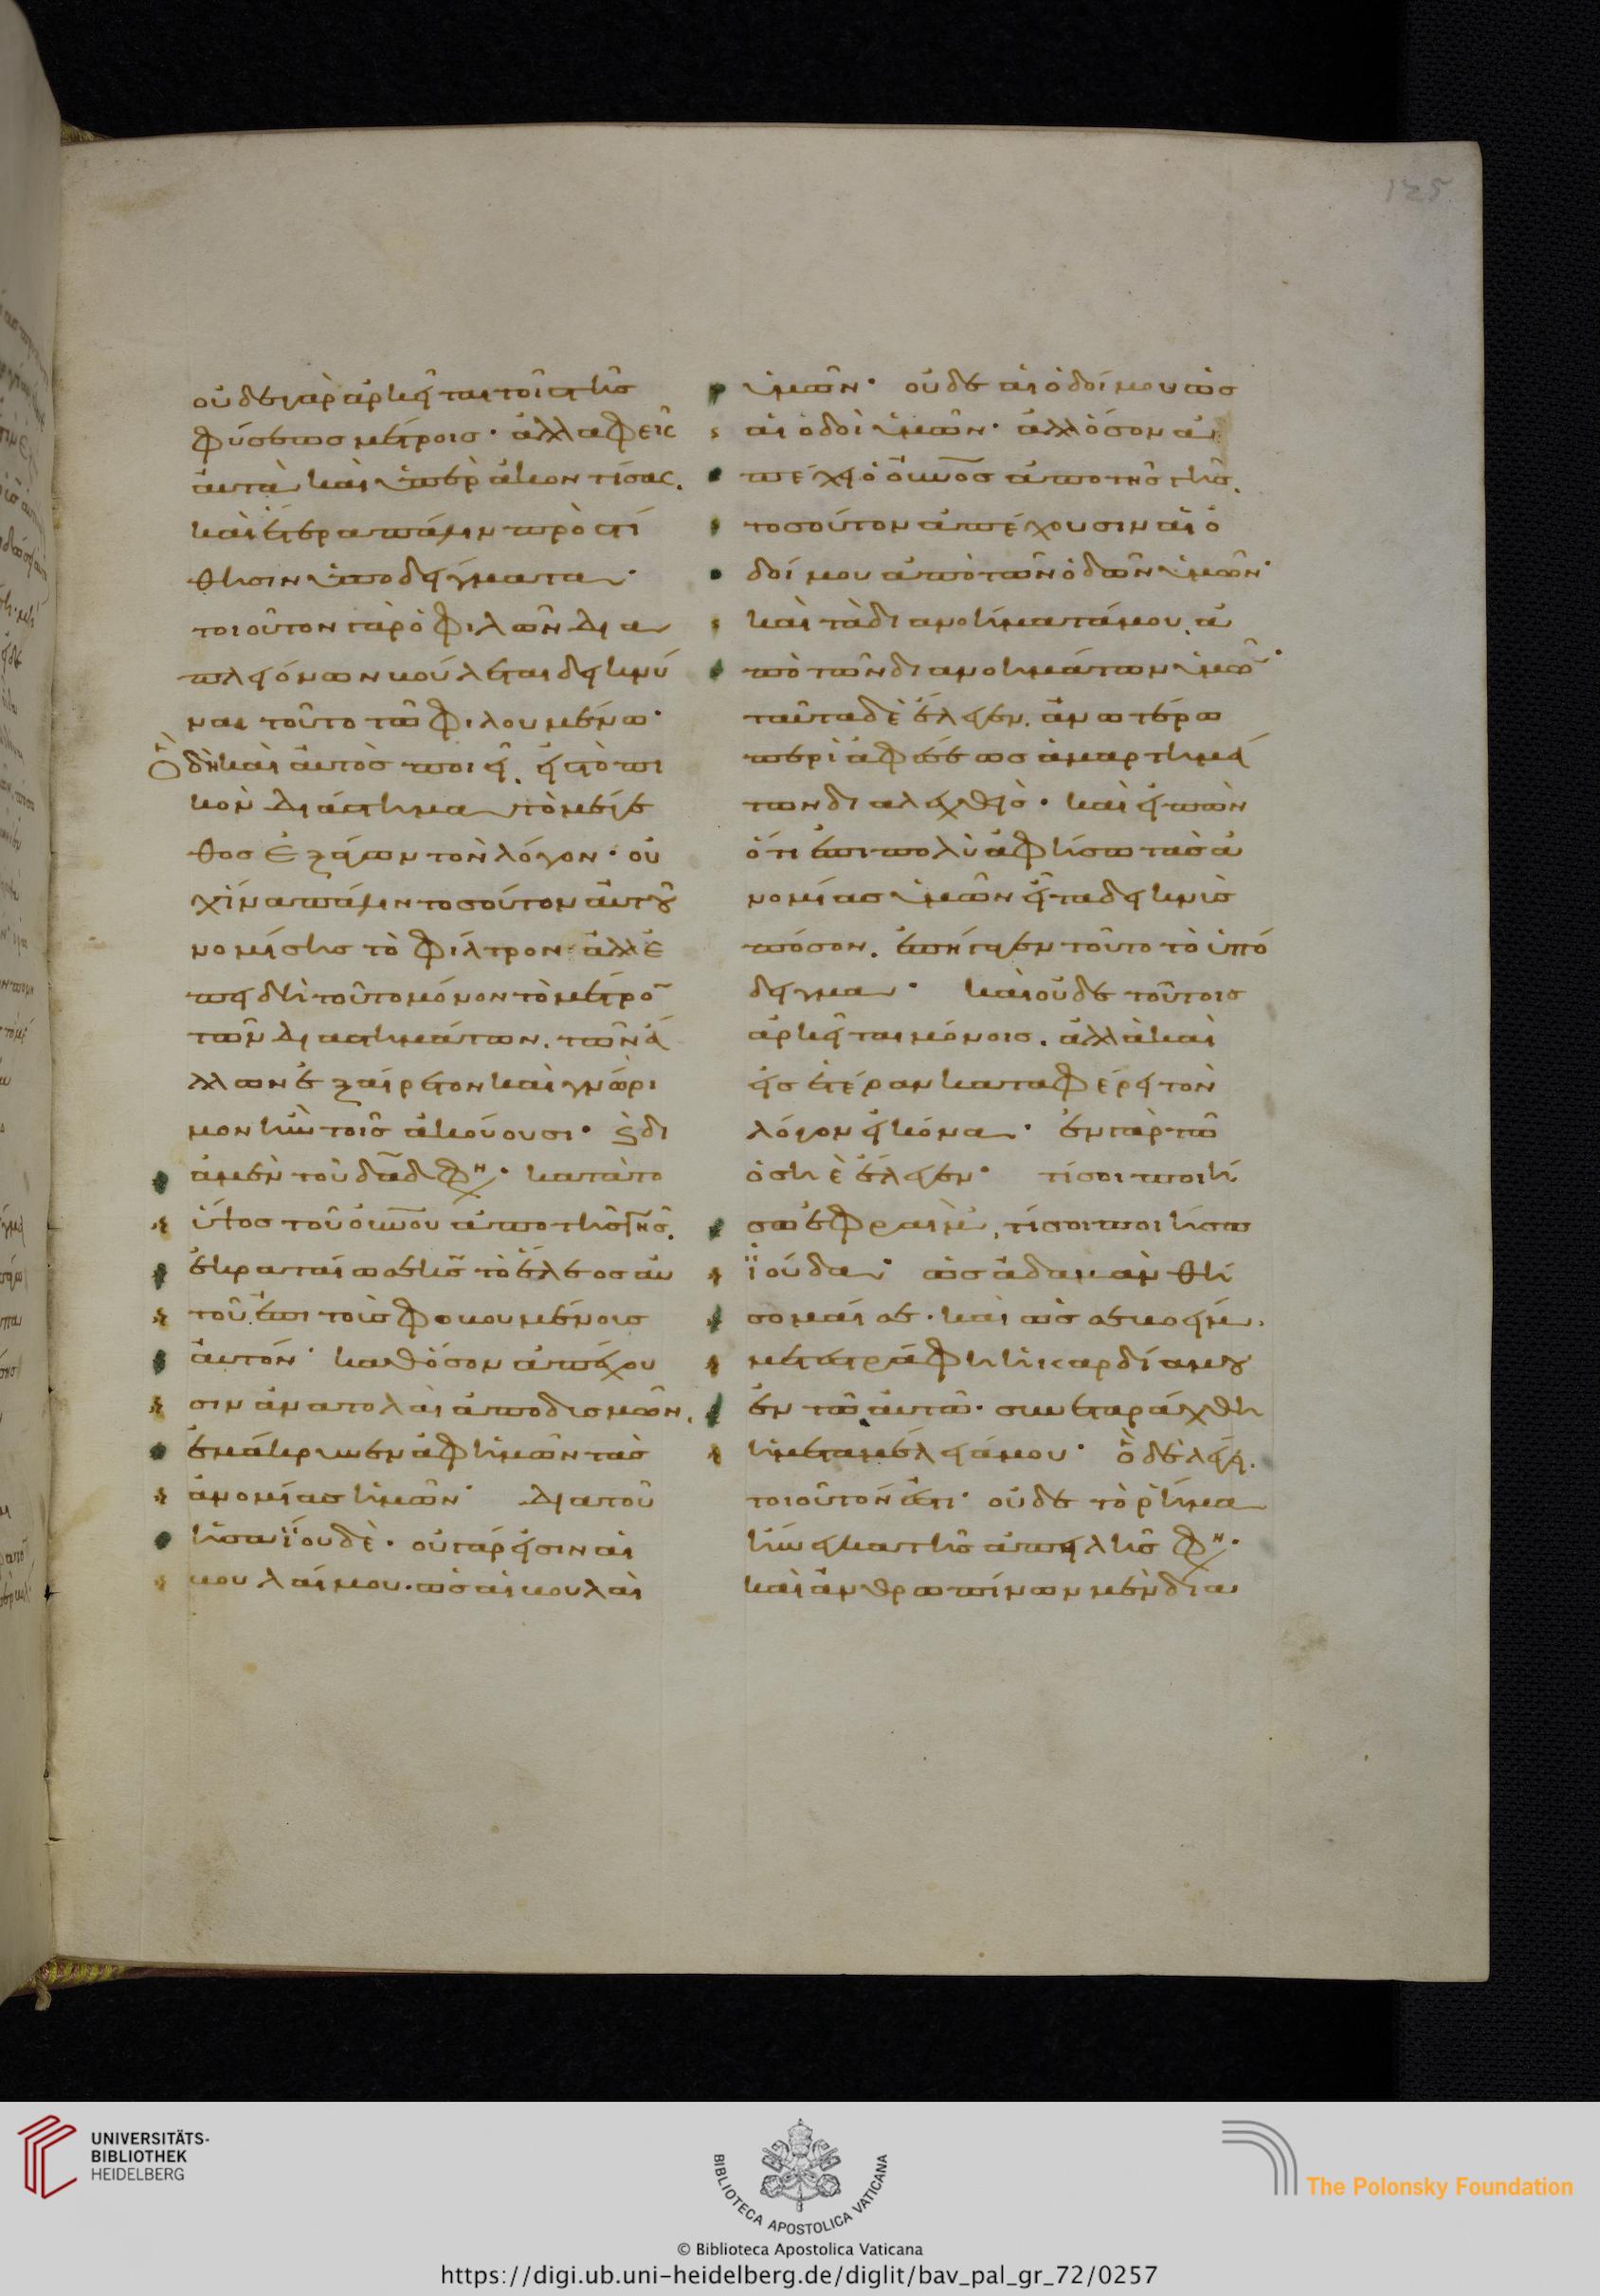 οὐδε γὰρ ἀρκεῖται τοῖς τῆς
φύσεως μέτροις· ἀλλ ἀφεὶς
αὐτὰ καὶ ὑπερακοντίσας.
καὶ ἕτερα πάλιν προστί
θησιν ὑποδείγματα·
τοιοῦτον γὰρ ὁ φιλῶν δια
πλειόνων βούλεται δεικνύ
ναι τοῦτο τῶ φιλουμένω·
ὃ δὴ καὶ αὐτὸς ποιεῖ. εἰς τοπι
κὸν διάστημα τὸ μέγε
θος ἐξάγων τὸν λόγον· οὐ
χ ἵνα πάλιν τοσοῦτον αὐτοῦ
νομίσης τὸ φίλτρον· ἀλλ ἐ
πειδὴ τοῦτο μόνον τὸ μέτρο̄
τῶν διαστημάτων. τῶν ἄ
λλων ἐξαίρετον καὶ γνώρι
μον ἦν τοῖς ἀκούουσι· ϗ δι
ὰ μὲν τοῦ δᾱδ φη· κατὰ το
ὕψος τοῦ οὐν̄ου ἀπο τῆς γῆς.
ἐκραταίωσεν τὸ ἔλεος αὐ
τοῦ ἐπι τοὺς φοβουμένους
αὐτόν· καθ ὅσον ἀπέχου
σιν ἀνατολαὶ ἀπο δυσμῶν.
ἐμάκρυνεν ἀφ ἡμῶν τὰς
ἀνομίας ἡμῶν· διὰ τοῦ
ἡσαΐου δὲ· οὐ γάρ εἰσιν αἱ
βουλαί μου· ὡς αἱ βουλαὶ
ὑμῶν· οὐδε αἱ ὁδοί μου ὡς
αἱ ὁδοὶ ὑμῶν· ἀλλ ὅσον ἀ
πέχει ὁ οὐν̄ος ἀπο τῆς γῆς.
τοσοῦτον ἀπέχουσιν αἱ ὁ
δοί μου ἀπὸ τῶν ὁδῶν ὑμῶν·
καὶ τὰ διανοήματά μου. ἀ
πὸ τῶν διανοημάτων ὑμῶ̄·
ταῦτα δὲ ἔλεγεν. ἀνωτέρω
περὶ ἀφέσεως ἁμαρτημά
των διαλεχθεὶς· καὶ εἰπὼν
ὅτι ἐπι πολὺ ἀφήσω τὰς ἀ
νομίας ὑμῶν εἶτα δεικνὺς
πόσον. ἐπήγαγεν τοῦτο τὸ ὑπό
δειγμα· καὶ οὐδε τούτοις
ἀρκεῖται μόνοις. ἀλλὰ καὶ
εἰς ἑτέραν καταφέρει τὸν
λόγον εἰκόνα· ἐν γὰρ τῶ
ὀσηὲ ἔλεγεν· τί σοι ποιή
σω ἐφραὶμ, τί σοι ποιήσω
ϊούδα· ὡς ἀδαμα ἂν θή
σομαί σε· καὶ ὡς σεβοείμ.
μετεστράφη ἡ καρδία μου
ἐν τῶ αὐτῶ· συνεταράχθη
ἡ μεταμέλειά μου· ὃ δὲ λέγει.
τοιοῦτόν ἐστι· οὐδε τὸ ῥῆμα
ἤνεγκα τῆς ἀπειλῆς φη·
καὶ ἀνθρωπίνων μὲν δια
125
UNIVERSITÄTS-
BIBLIOTHEK
HEIDELBERG
BIBLIOTECA APOSTOLICA VATICANA
The Polonsky Foundation
© Biblioteca Apostolica Vaticana
https://digi.ub.uni-heidelberg.de/diglit/bav_pal_gr_72/0257